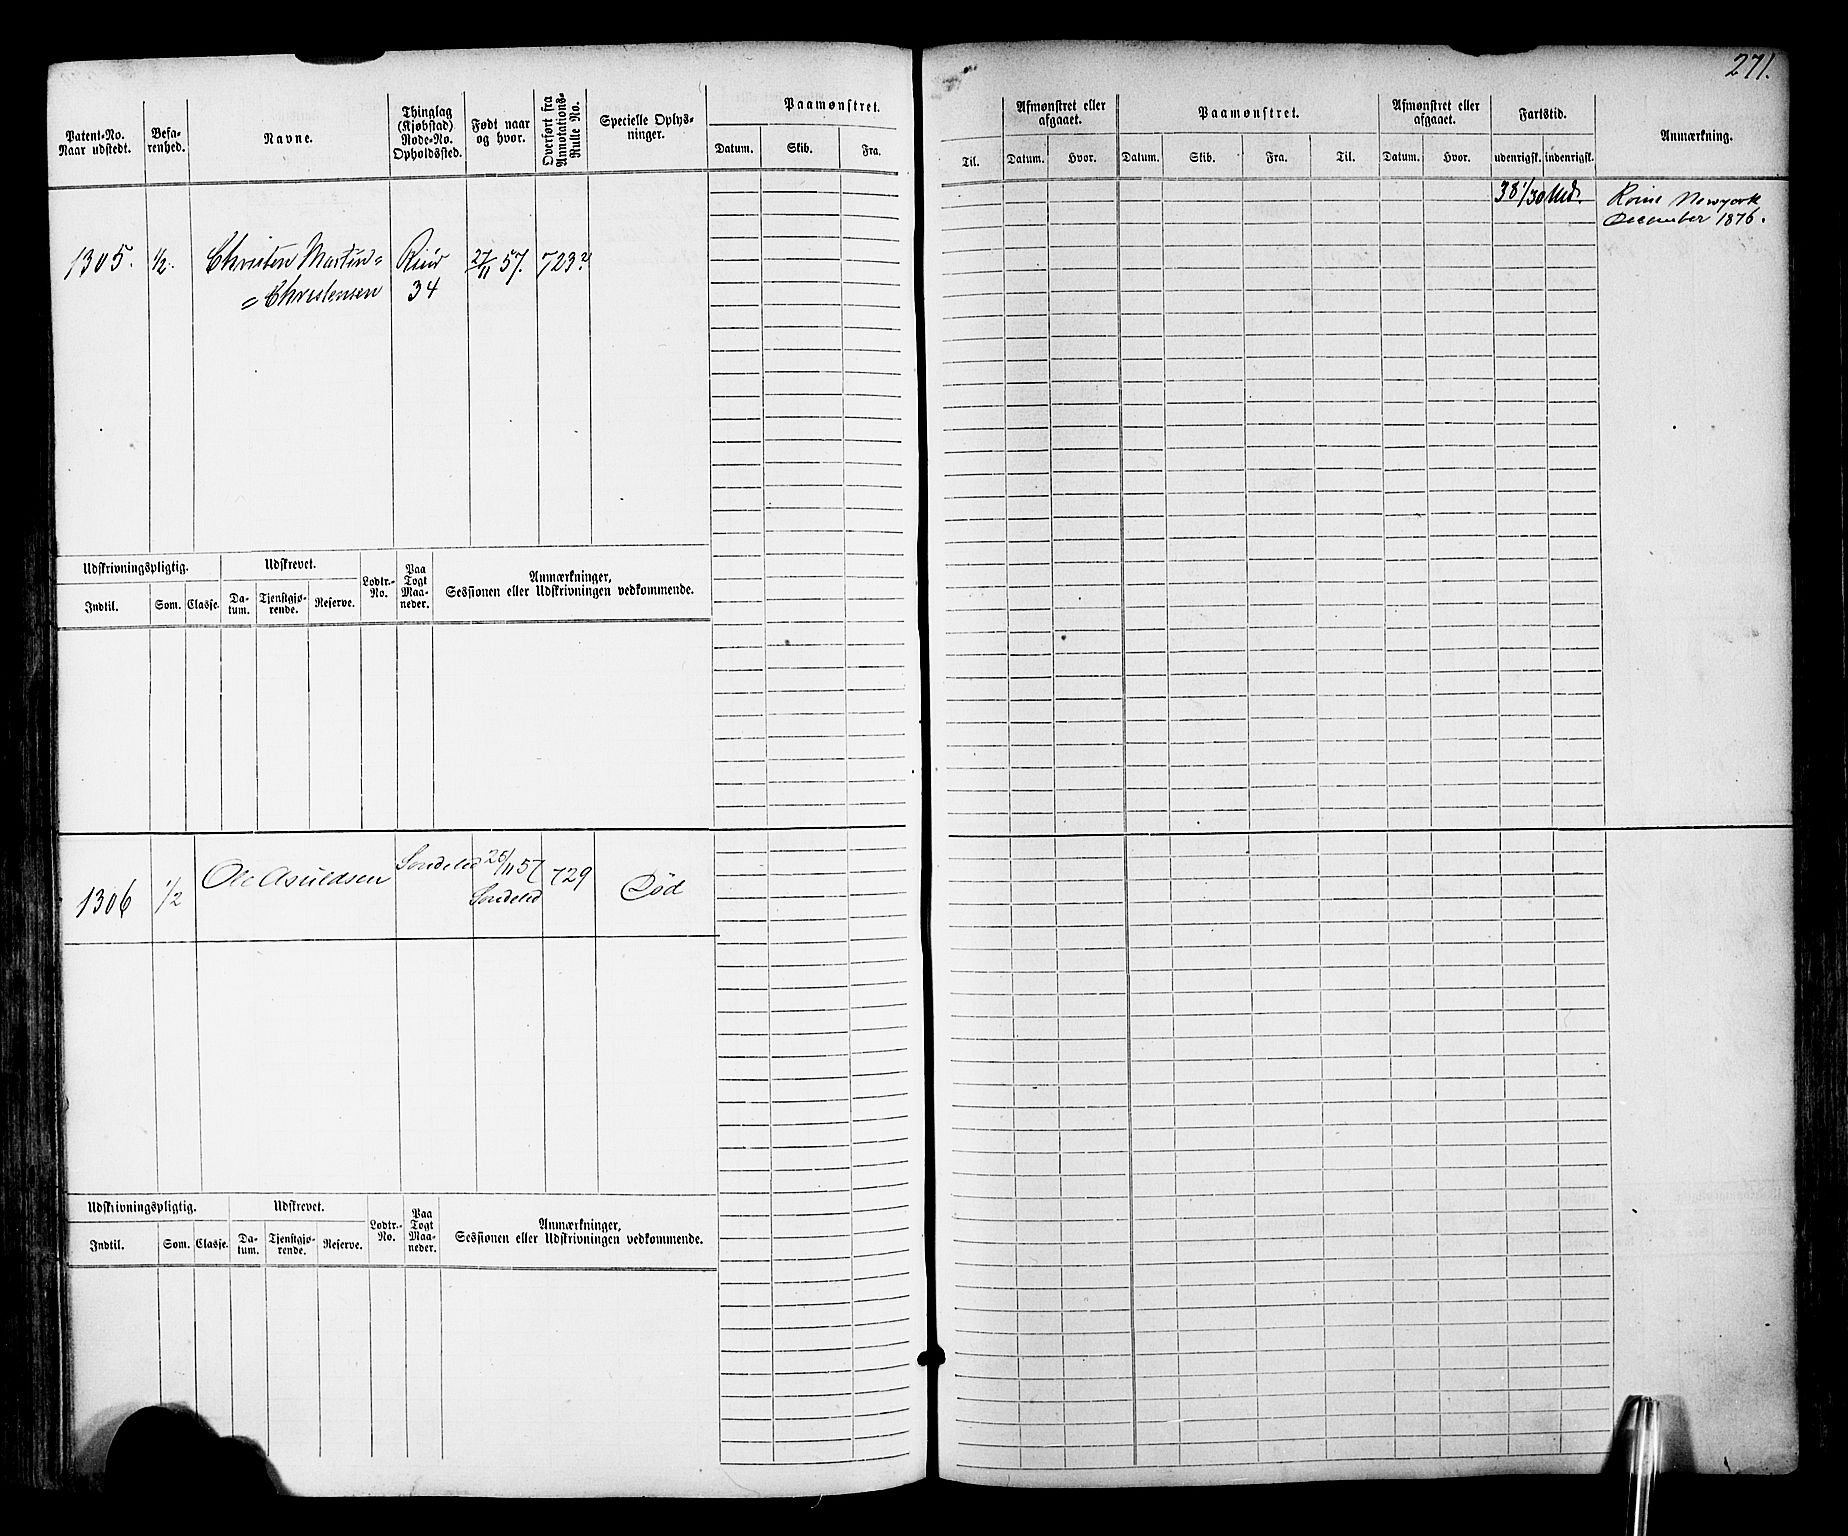 271.
Patent-No. Naar udstedt.
Befa- renhed.
Navne.
Thinglag (Kjøbstad) Rode-No. Opholdssted.
Født naar og hvor.
Overført fra Annotations- Rulle No.
Specielle Oplys- ninger.
Paamønstret.
Datum. Skib. Fra.
Til.
Afmønstret eller afgaaet.
Datum. Hvor.
Paamønstret.
Datum. Skib. Fra. Til.
Afmønstret eller afgaaet.
Datum. Hvor.
Fartstid.
udenrigsk. indenrigsk.
Anmærkning.
38 1/30 Md.
Newyork
December 1876.
1305. 1/2. Christen Martin= 27/11 57. 723
=Christensen 34
Udskrivningspligtig. Udskrevet. Lodtr.- No. Paa Togt Maa- neder. Anmærkninger,
Sessionen eller Udskrivningen vedkommende.
Indtil. Som. Classe. Da- tum. Tjenstgjø- rende. Reserve.
1306 1/2 Ole Asuldsen Søndeled 26/11 57 729 Død
Søndeled
Udskrivningspligtig. Udskrevet. Lodtr.- No. Paa Togt Maa- neder. Anmærkninger,
Sessionen eller Udskrivningen vedkommende.
Indtil. Som. Classe. Da- tum. Tjenstgjø- rende. Reserve.